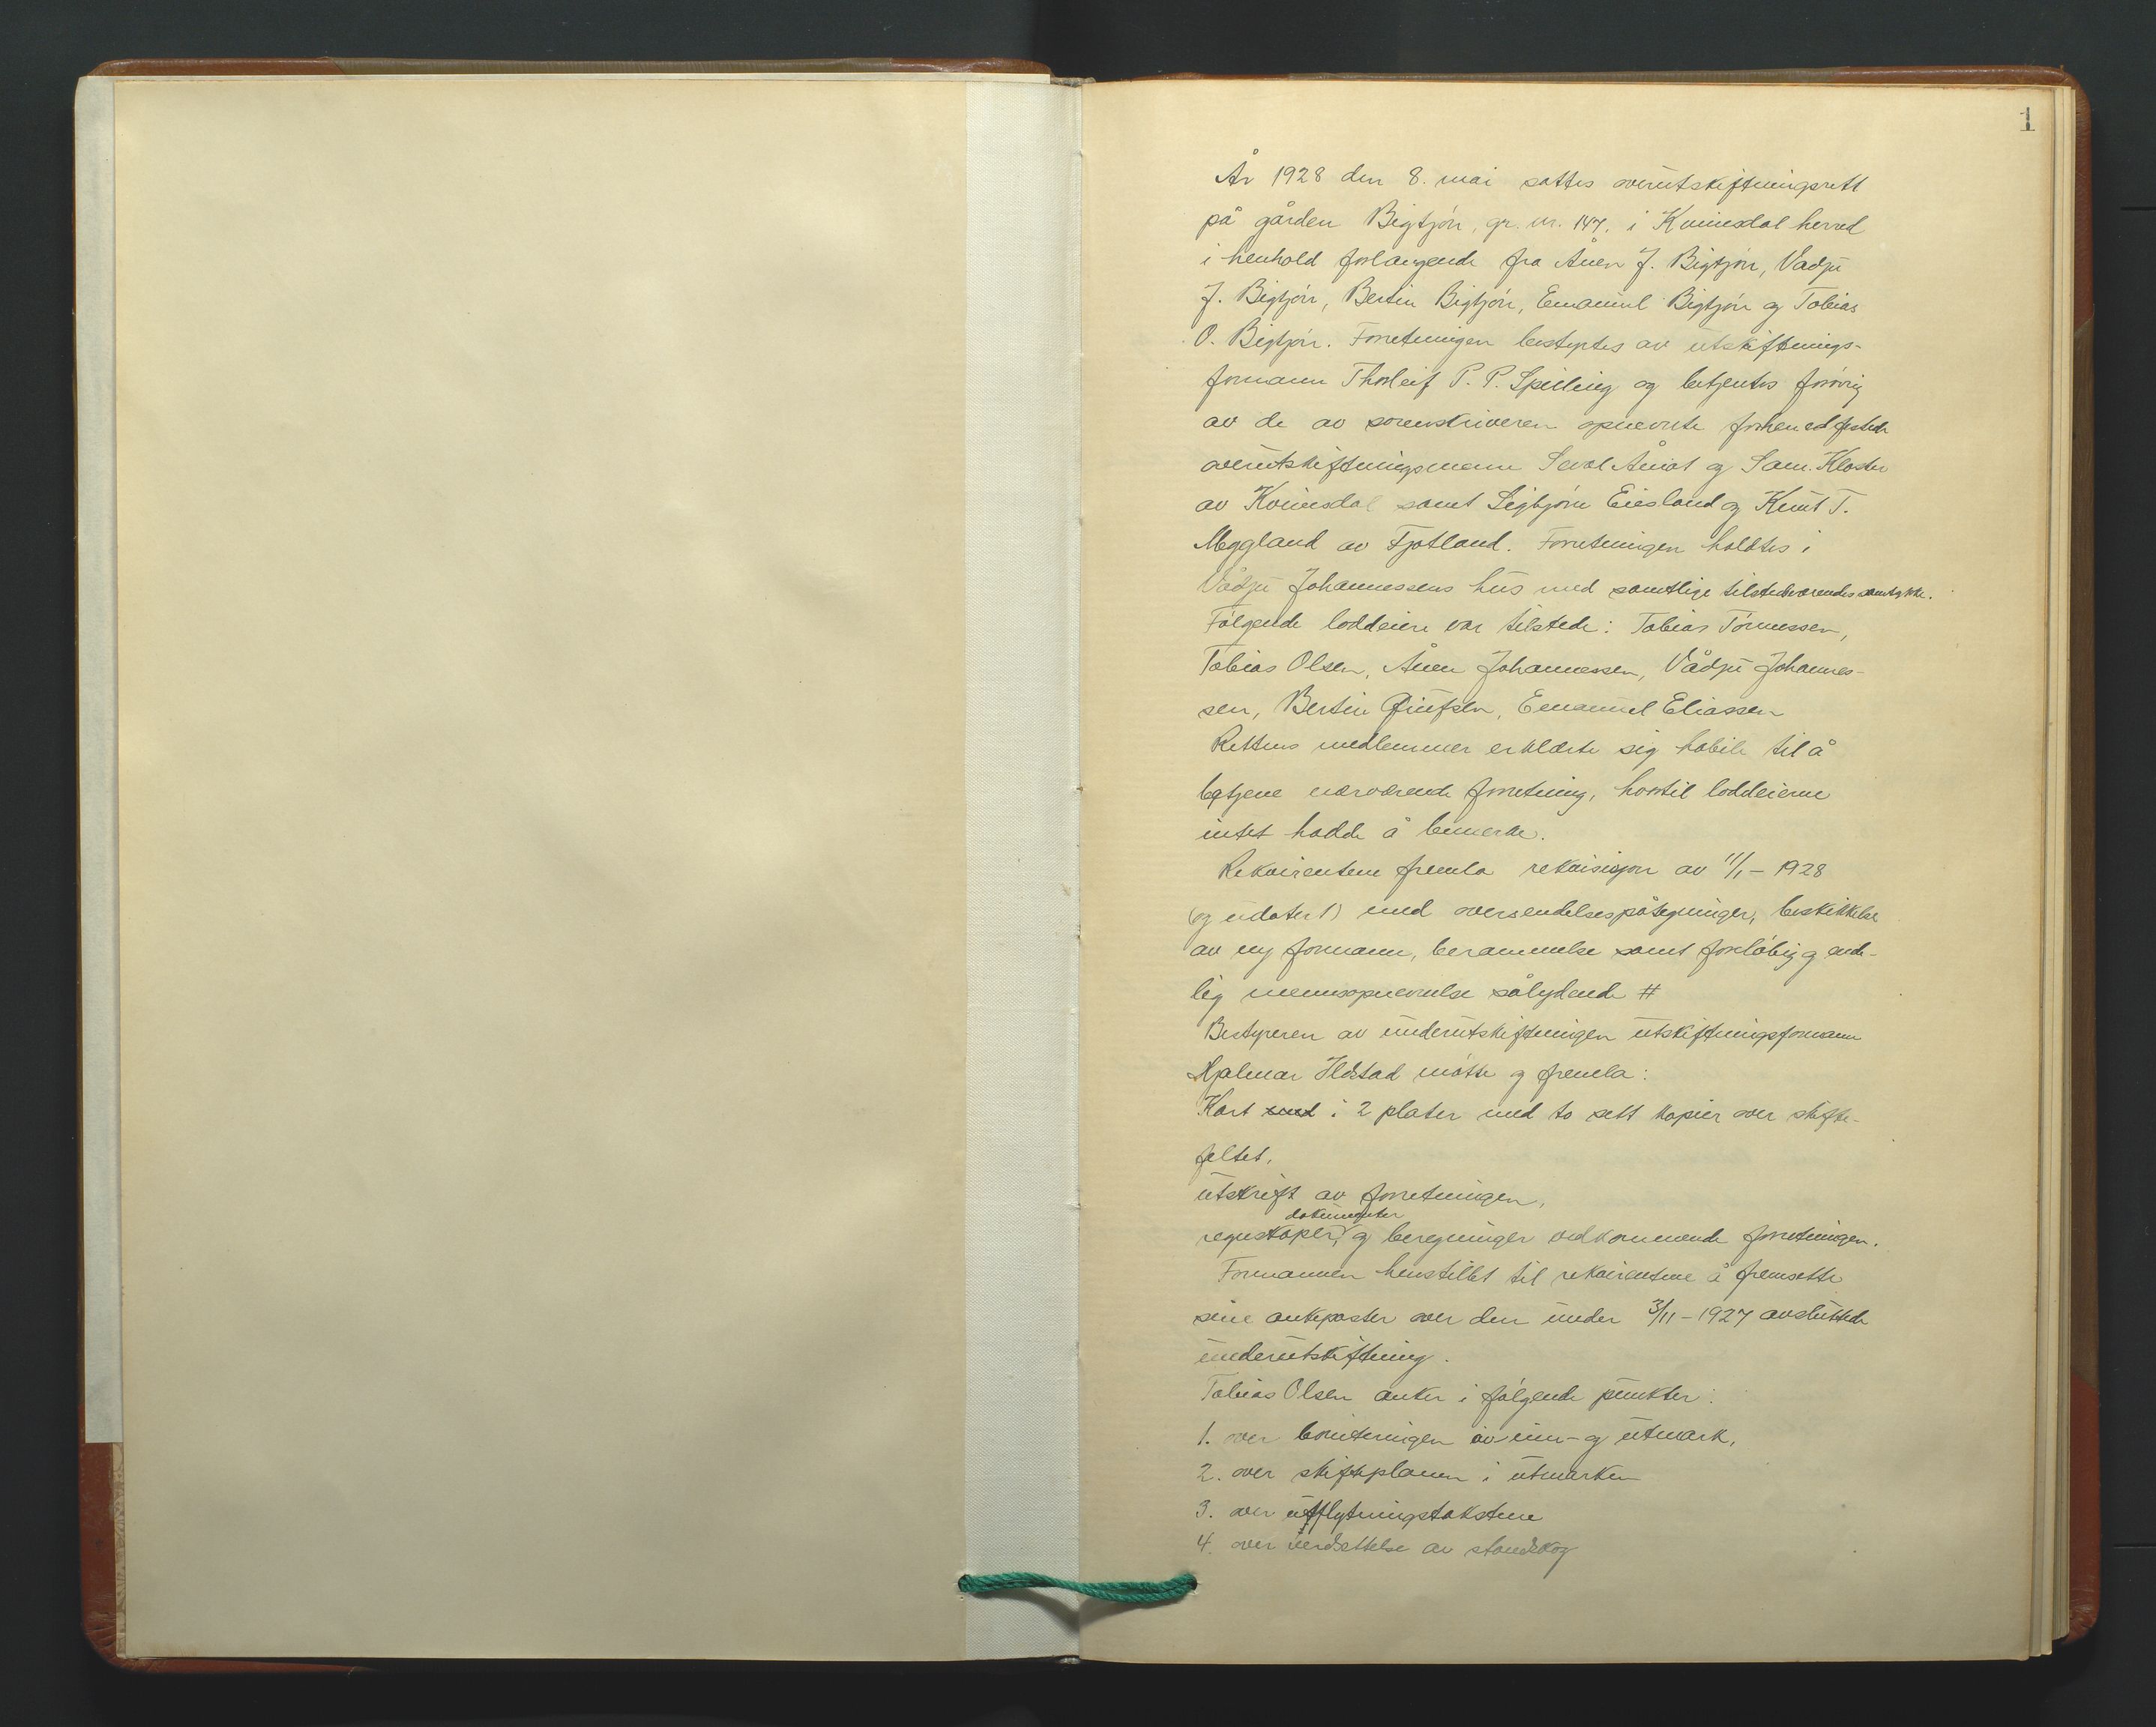 1
År 1928 den 8. mai sattes overutskiftningsrett
på gården Bigtjön, gr. nr. 147, i Kvinesdal herred
i henhold forlangende fra Ånen J. Bigtjön, Vadju
J. Bigtjön, Bertin Bigtjön, Emanuel Bigtjön og Tobias
O. Bigtjön. Forretningen bestyrtes av utskiftnings-
formann Thorleif P. P. Speilling og betjentes forövrig
av de av sorenskriveren opnevnte forhen edfestede
overutskiftningsmenn Seval Åmot og Sam. Kloster
av Kvinesdal samt Sigbjörn Eiesland og Knut T.
Meggland av Fjotland. Forretningen holdtes i
Vådju Johannessens hus med samtlige tilstedeværendes samtykke.
Fölgende loddeiere var tilstede: Tobias Tönnessen,
Tobias Olsen, Ånen Johannessen, Vådju Johannes-
sen, Bertin Guttormsen, Emanuel Eliassen
Rettens medlemmer erklærte sig habile til å
betjene nærværende forretning, hvortil loddeierne
intet hadde å bemerke.
Rekvirentene fremla rekvisisjon av 11/1 – 1928
(og udatert) med oversendelsespåtegninger, beskikkelse
av ny formann, berammelse samt foreløbig og ende-
lig mennsopnevnelse sålydende #
Bestyreren av underutskiftningen utskiftningsformann
Hjalmar Ilstad mötte og fremla:
Kart med i 2 plater med to sett kopier over skifte-
feltet,
utskrift av forretningen,
regnskaper, dokumenter og beregninger vedkommende forretningen.
Formannen henstillet til rekvirentene å fremsette
sine ankeposter over den under 3/11 – 1927 avsluttede
underutskiftning.
Tobias Olsen anker i fölgende punkter:
1. over boniteringen av inn- og utmark,
2. over skifteplanen i utmarken
3. over utflytningstakstene
4. over verdsettelse av standskog